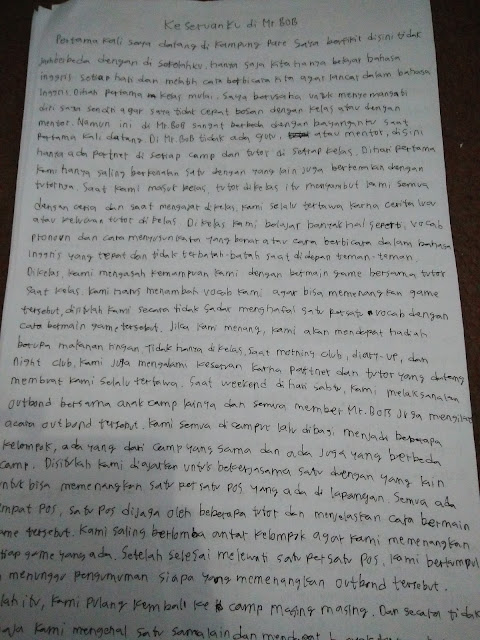 Keseruanku di Mr.BOB
Pertama kali saya datang di kampung Pare saya berfikir disini tidak
berbeda dengan di sekolahku, hanya saja kita hanya belajar bahasa
inggris setiap hari dan melatih cara berbicara kita agar lancar dalam bahasa
inggris. Dihari pertama kelas mulai. Saya berusaha untuk menyemangati
diri saya sendiri agar saya tidak cepat bosan dengan kelas atau dengan
mentor. Namun ini di Mr.BOB sangat berbeda dengan bayanganku saat
pertama kali datang. Di Mr.BOB tidak ada guru, atau mentor, disini
hanya ada partnet di setiap camp dan tutor di setiap kelas. Dihari pertama
kami hanya saling berkenalan satu dengan yang lain juga berteman dengan
tutornya. Saat kami masuk kelas, tutor di kelas itu menyambut kami semua
dengan ceria dan saat mengajar di kelas, kami selalu tertawa karna cerita lucu
atau kelucuan tutor di kelas. Di kelas kami belajar banyak hal seperti, vocab
pronoun dan cara menyusun kata yang benar atau cara berbicara dalam bahasa
inggris yang tepat dan tidak terbatah-batah saat di depan teman-teman.
Dikelas kami mengasah kemampuan kami dengan bermain game bersama tutor
saat kelas, kami harus menambah vocab kami agar bisa memenangkan game
tersebut, disitulah kami secara tidak sadar menghafal satu persatu vocab dengan
cara bermain game tersebut. Jika kami menang, kami akan mendapat hadiah
berupa makanan ringan. Tidak hanya di kelas, saat morning club, diart-up, dan
night club, kami juga mengalami keseruan karna partnet dan tutor yang datang
membuat kami selalu tertawa. Saat weekend di hari sabtu, kami melaksanakan
outbond bersama anak camp lainya dan semua member Mr.BOB juga mengikuti
acara outbond tersebut. Kami semua di campur lalu dibagi menjadi beberapa
kelompok, ada yang dari camp yang sama dan ada juga yang berbeda
camp. Disitulah kami diajarkan untuk bekerjasama satu dengan yang lain
untuk bisa memenangkan satu per satu pos yang ada di lapangan. Semua ada
empat pos, satu pos dijaga oleh beberapa tutor dan menjelaskan cara bermain
game tersebut. Kami saling berlomba antar kelompok agar kami memenangkan
tiap game yang ada. Setelah selesai melewati satu per satu pos, kami berkumpul
menunggu pengumuman siapa yang memenangkan outbond tersebut.
lah itu, kami pulang kembali ke camp masing masing. Dan secara tidak
kami mengenal satu sama lain dan